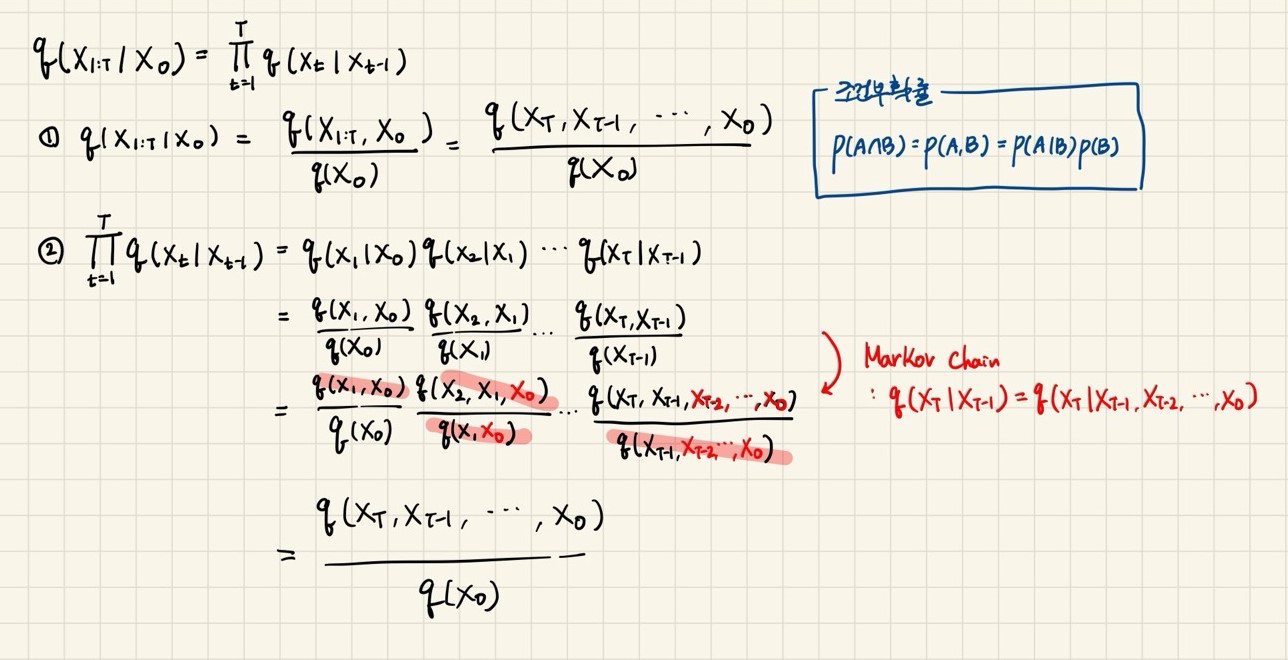 q(x₁:T | x₀) = ∏ₜ₌₁ᵀ q(xₜ | xₜ₋₁)
① q(x₁:T | x₀) = q(x₁:T, x₀) / q(x₀) = q(x_T, x_T-1, ⋯, x₀) / q(x₀)
조건부확률
p(A∩B) = p(A,B) = p(A|B)p(B)
② ∏ₜ₌₁ᵀ q(xₜ | xₜ₋₁) = q(x₁|x₀) q(x₂|x₁) ⋯ q(x_T | x_T-1)
= q(x₁, x₀) / q(x₀) q(x₂, x₁) / q(x₁) ⋯ q(x_T, x_T-1) / q(x_T-1)
= q(x₁, x₀) / q(x₀) q(x₂, x₁, x₀) / q(x₁ x₀) ⋯ q(x_T, x_T-1, x_T-2, ⋯, x₀) / q(x_T-1, x_T-2, ⋯, x₀)
Markov Chain
: q(x_T | x_T-1) = q(x_T | x_T-1, x_T-2, ⋯, x₀)
= q(x_T, x_T-1, ⋯, x₀) / q(x₀)